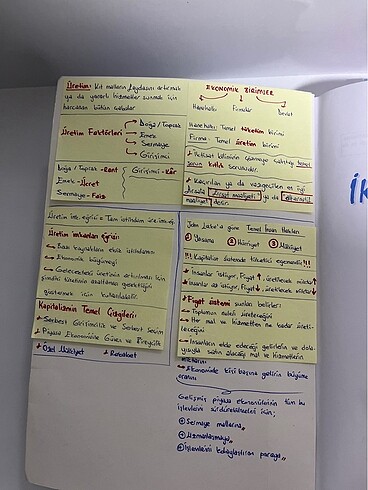 Üretim: Kıt malların faydasını artırmak
ya da yararlı hizmetler sunmak için
harcanan bütün çabalar
Üretim Faktörleri
Doğa / Toprak
Emek
Sermaye
Girişimci
Doğa / Toprak - Rant
Emek - Ücret
Sermaye - Faiz
Girişimci - Kâr
EKONOMİK BİRİMLER
Hanehalkı Firmalar Devlet
Hanehalkı: Temel tüketim birimi
Firma: Temel üretim birimi
* İktisat biliminin çözmeye çalıştığı temel
sorun kıtlık sorunudur.
* Kaçırılan ya da vazgeçilen en iyi
fırsata fırsat maliyeti ya da alternatif
maliyet denir.
Üretim imk. eğrisi = Tam istihdam üretim eğ.
Üretim imkanları eğrisi:
Bazı kaynakların eksik istihdamını
Ekonomik büyümeyi
Gelecekteki üretimin artırılması için
şimdiki tüketimin azaltılması gerektiğini
göstermek için kullanılabilir.
Kapitalizmin Temel Çizgileri:
Serbest Girişimcilik ve Serbest Seçim
Piyasa Ekonomisine Güven ve Bireycilik
* Özel Mülkiyet * Rekabet
John Locke'a göre Temel İnsan Hakları
1 Yaşama 2 Hürriyet 3 Mülkiyet
!!! Kapitalist sistemde tüketici egemendir!!!
* İnsanlar istiyor, Fiyat ↑, üretilecek miktar ↑
* İnsanlar az istiyor, Fiyat ↓, üretilecek miktar ↓
* Fiyat sistemi şunları belirler:
Toplumun neleri üreteceğini
Her mal ve hizmetten ne kadar üreti-
leceğini
İnsanların elde edeceği gelirlerin ve dola-
yısıyla satın alacağı mal ve hizmetlerin
miktarını
Ekonomide kişi başına gelirin büyüme
oranını
Gelişmiş piyasa ekonomilerinin tüm bu
işlevlerini sürdürebilmeleri için;
Sermaye mallarına,
Uzmanlaşmaya,
İşlemlerini kolaylaştıran paraya,
İK